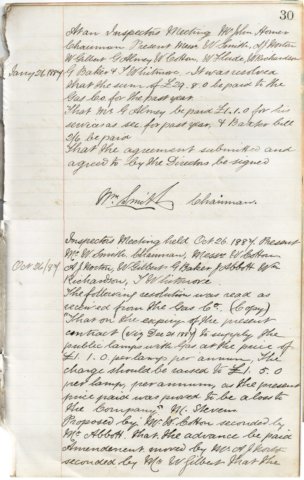 30
At an Inspectors Meeting Mr John Homer
Chairman Present Messrs W Smith, A J Horton
W Gilbert G Abney W Cotton, W Slade, W Richardson
Jany 26, 1884 G Baker & T Whitmore. It was resolved
that the sum of £29. 8. 0 be paid to the
Gas Co for the past year.
That Mr G Abney be paid £1. 1. 0 for his
services as sec for past year, & Baker bill
be paid
That the agreement submitted and
agreed to by the Directors be signed
Wm Smith Chairman.
Inspectors Meeting held Oct 26. 1884. Present
Oct 26/84 Mr W Smith Chairman, Messrs W Cotton
A J Horton, W Gilbert G Baker J Abbott Wm
Richardson, T Whitmore.
The following resolution was read as
received from the Gas Co. (Copy)
"That on the expiry of the present
contract (viz Dec 31 1884) to supply the
public lamps with Gas at the price of
£1. 1. 0 per lamp per annum, The
charge should be raised to £1. 5. 0
per lamp, per annum, as the present
price paid was proved to be a loss to
the Company" M. Stevens
Proposed by Mr W Cotton seconded by
Mr Abbott. That the advance be paid
Amendment moved by Mr A J Horton
seconded by Mr W Gilbert That the